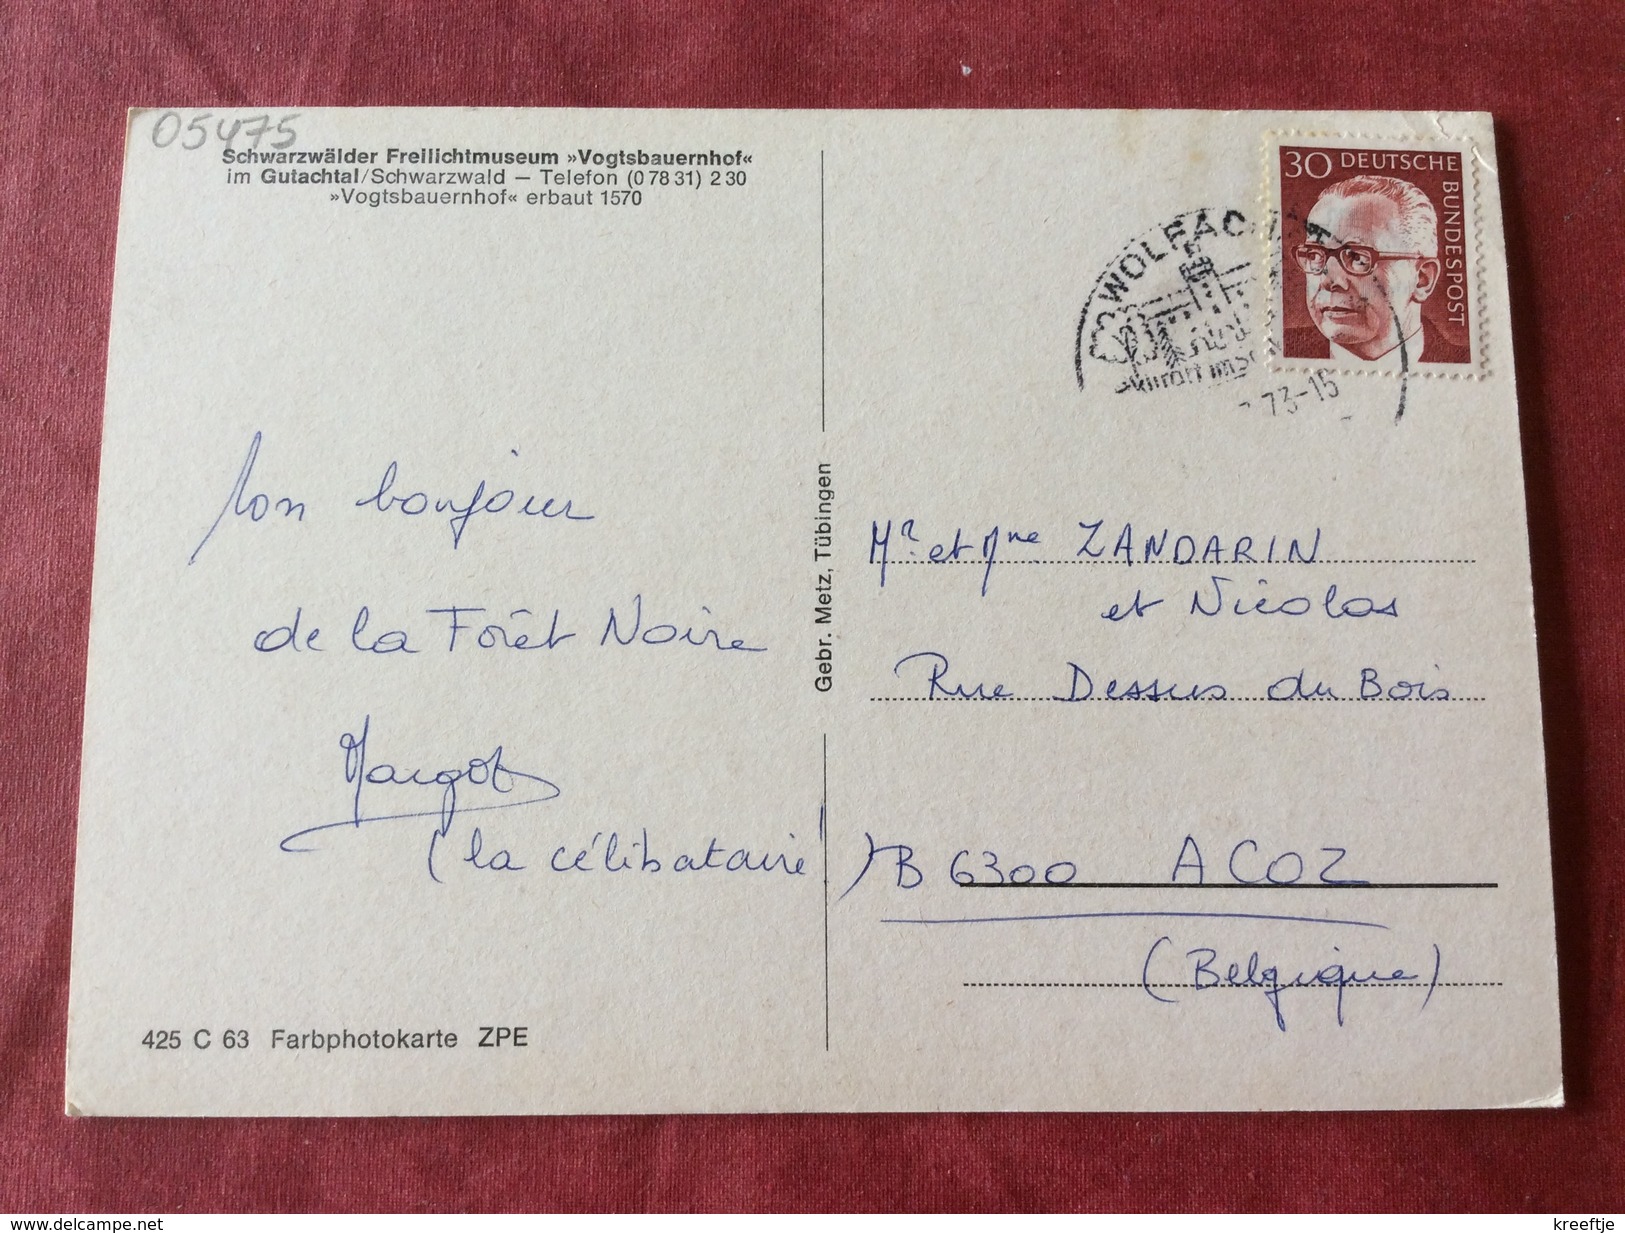 05475
Schwarzwälder Freilichtmuseum »Vogtsbauernhof«
im Gutachtal/Schwarzwald — Telefon (0 78 31) 2 30
»Vogtsbauernhof« erbaut 1570
30 DEUTSCHE
BUNDESPOST
WOLFACH
Kurort im
73-15
Mon bonjour
de la Forêt Noire
Margot
(la célibataire!)
Gebr. Metz, Tübingen
Mr. et Mme ZANDARIN
et Nicolas
Rue Dessus du Bois
B 6300 ACOZ
(Belgique)
425 C 63 Farbphotokarte ZPE
www.delcampe.net
kreeftje